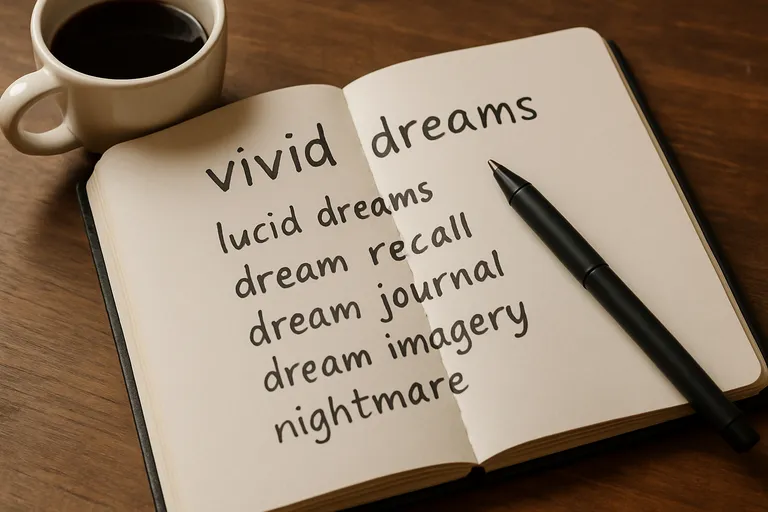 vivid dreams
lucid dreams
dream recall
dream journal
dream imagery
nightmare